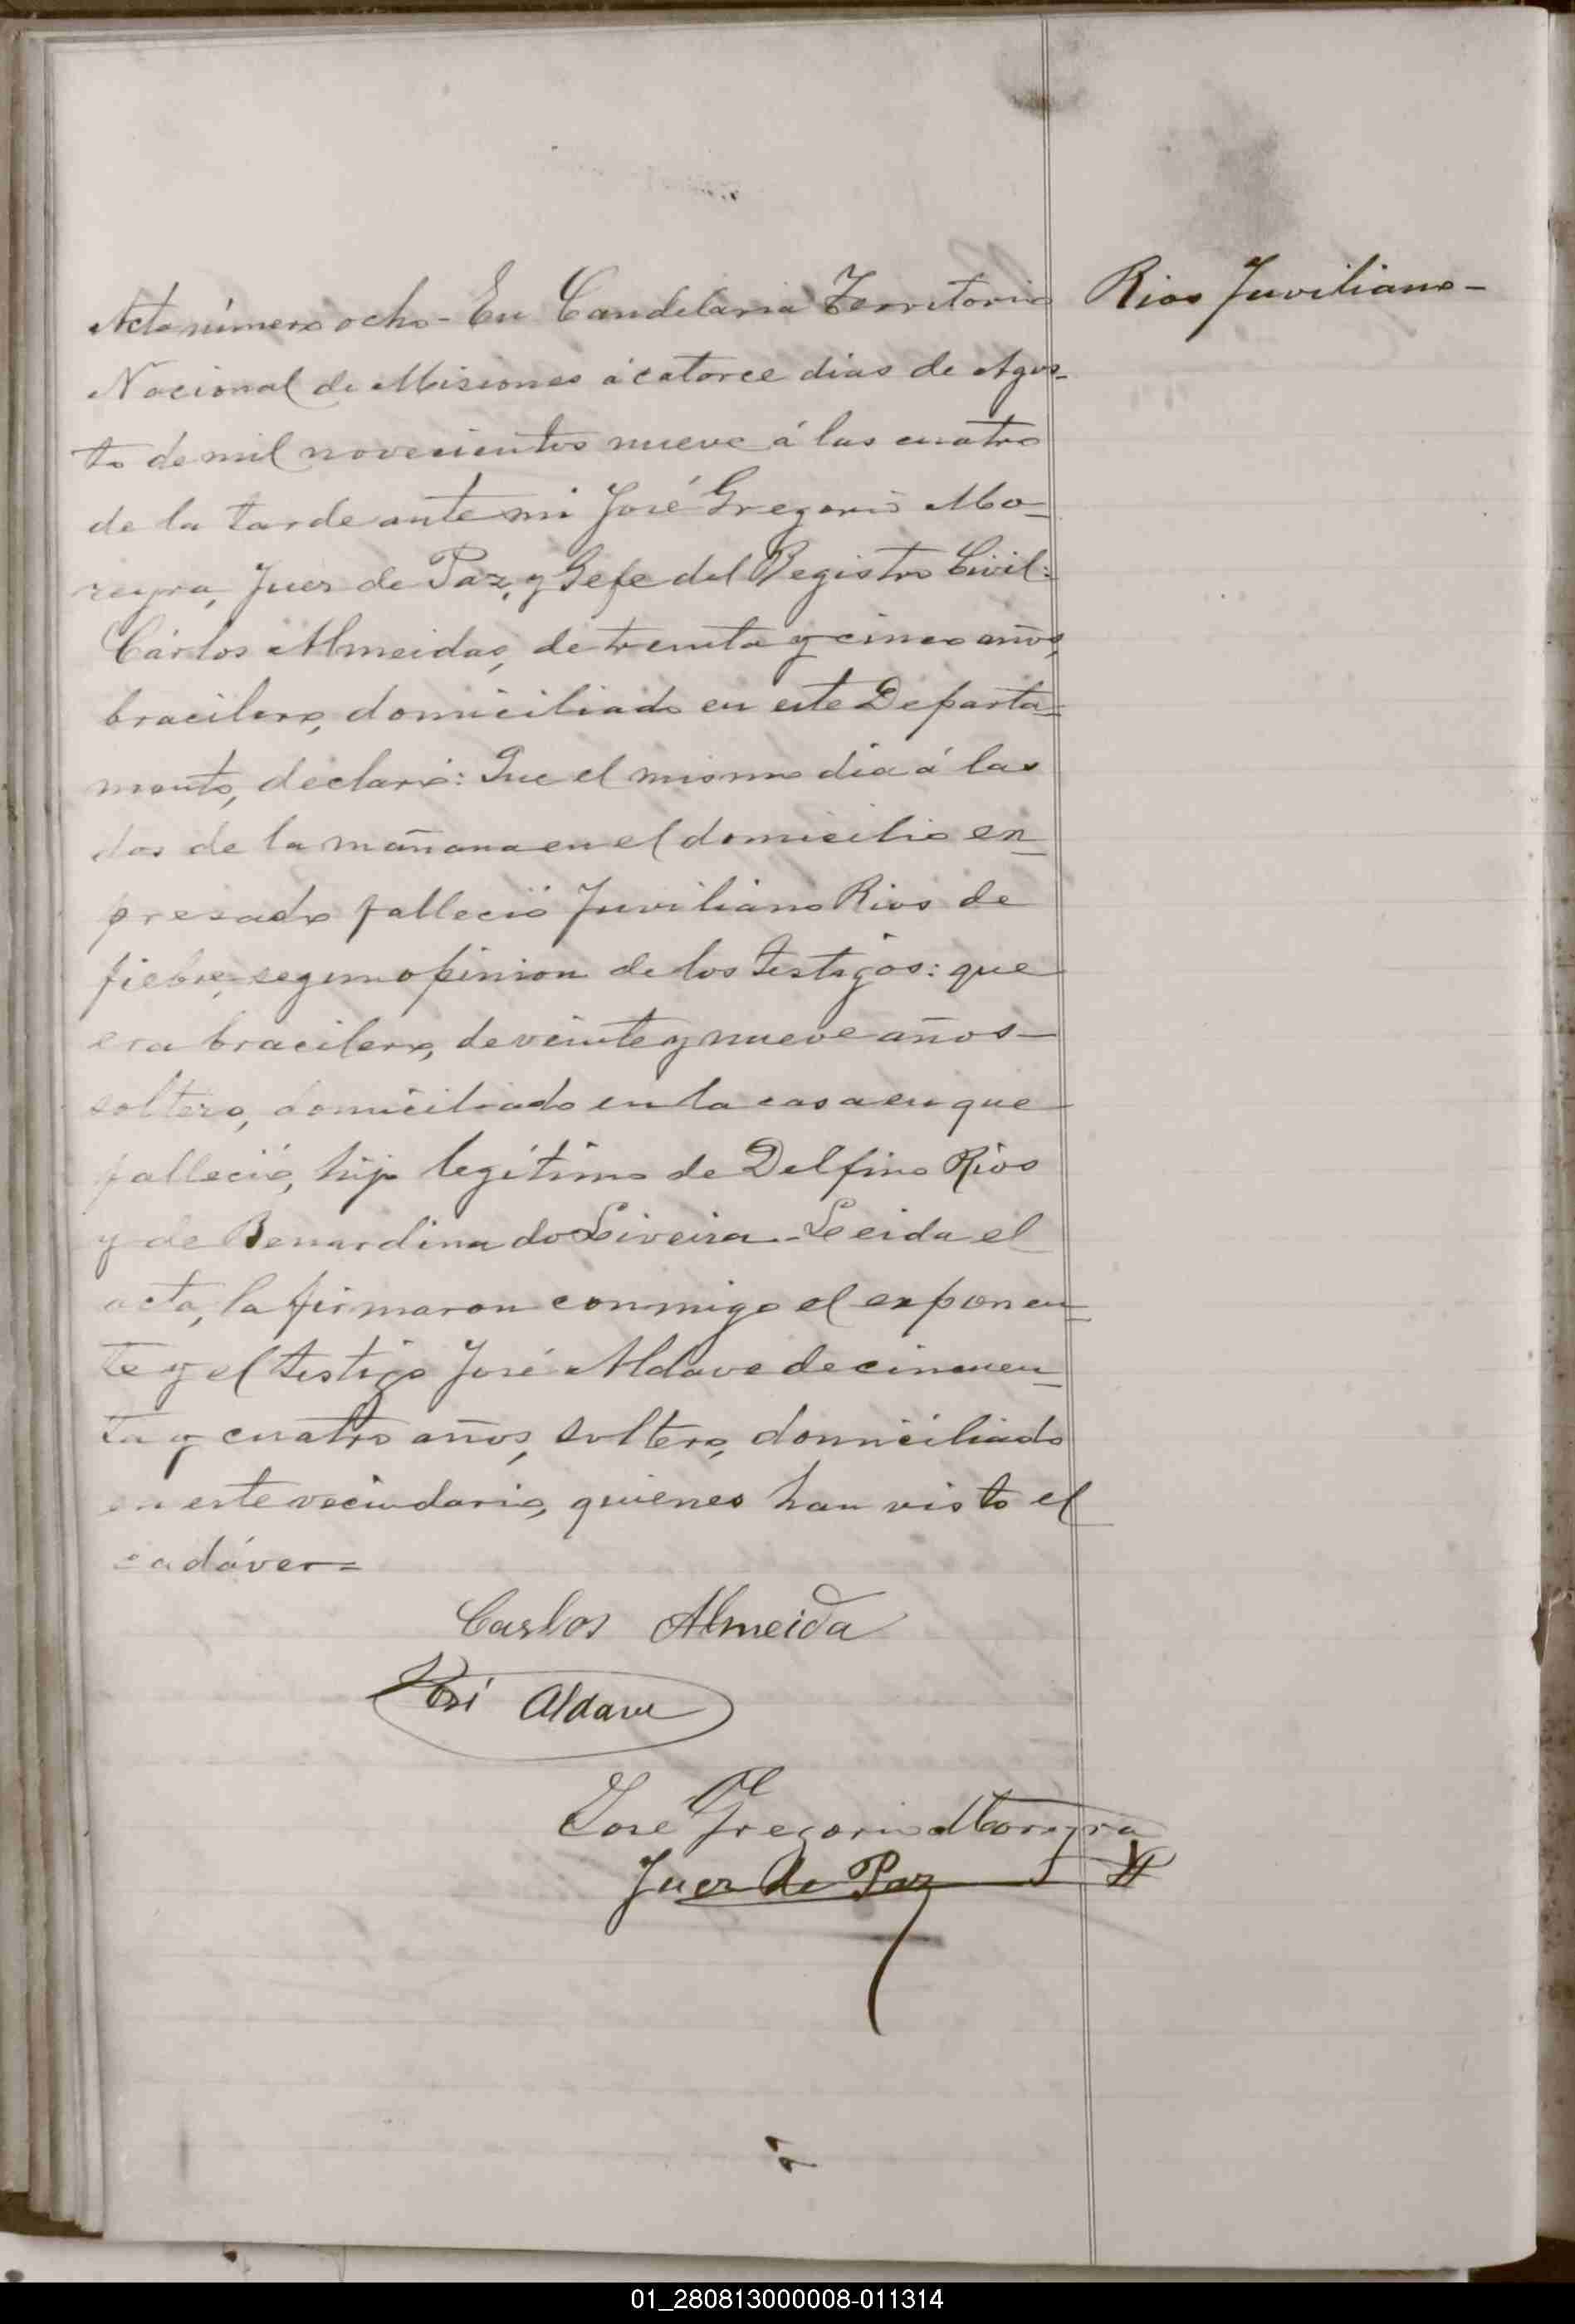 Rios Juviliano-
Acta número ocho- En Candelaria Territorio
Nacional de Misiones á catorce dias de Agos-
to de mil novecientos nueve á las cuatro
de la tarde ante mi José Gregorio Mo-
reyra, Juez de Paz, y Gefe del Registro Civil:
Cárlos Almeidas, de treinta y cinco años,
bracilero, domiciliado en este Departa-
mento, declaró: Que el mismo dia á las
dos de la mañana en el domicilio ex-
presado falleció Juviliano Rios de
fiebre, segun opinion de los testigos: que
era bracilero, de veinte y nueve años-
soltero, domiciliado en la casa en que
falleció, hijo legítimo de Delfino Rios
y de Benardina do Liveira- Leida el
acta, la firmaron conmigo el exponen-
te y el testigo José Aldave de cincuen-
ta y cuatro años, soltero, domiciliado
en este vecindario, quienes han visto el
cadáver=
Carlos Almeida
José Aldave
José Gregorio Moreyra
Juez de Paz
01_280813000008-011314